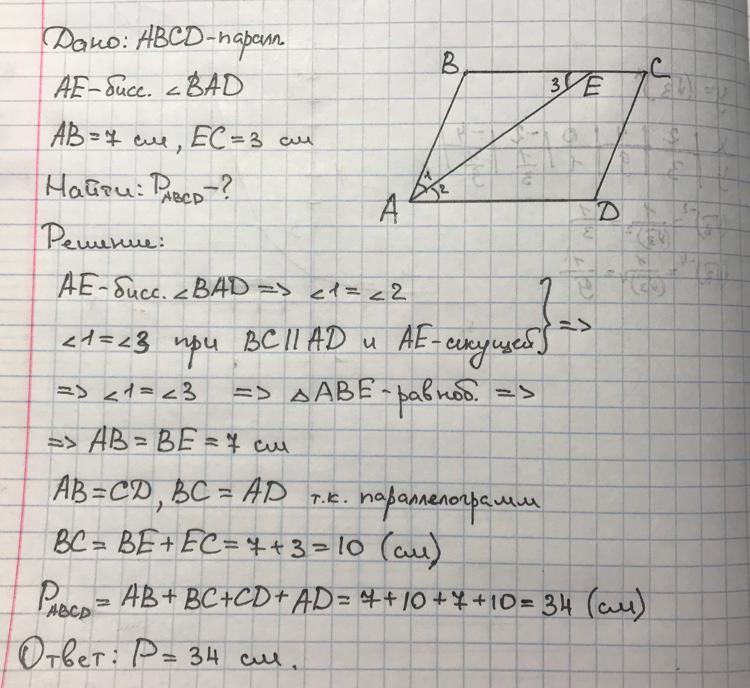 Дано: ABCD-парал.
AE-бисс. ∠BAD
AB=7 см, EC=3 см
Найти: P_ABCD-?
B
3
E
C
A
1
2
D
Решение:
AE-бисс. ∠BAD => ∠1=∠2
∠1=∠3 при BC || AD и AE-секущей } =>
=> ∠1=∠3 => △ABE-равноб. =>
=> AB=BE=7 см
AB=CD, BC=AD т.к. параллелограмм
BC=BE+EC=7+3=10 (см)
P_ABCD=AB+BC+CD+AD=7+10+7+10=34 (см)
Ответ: P=34 см.